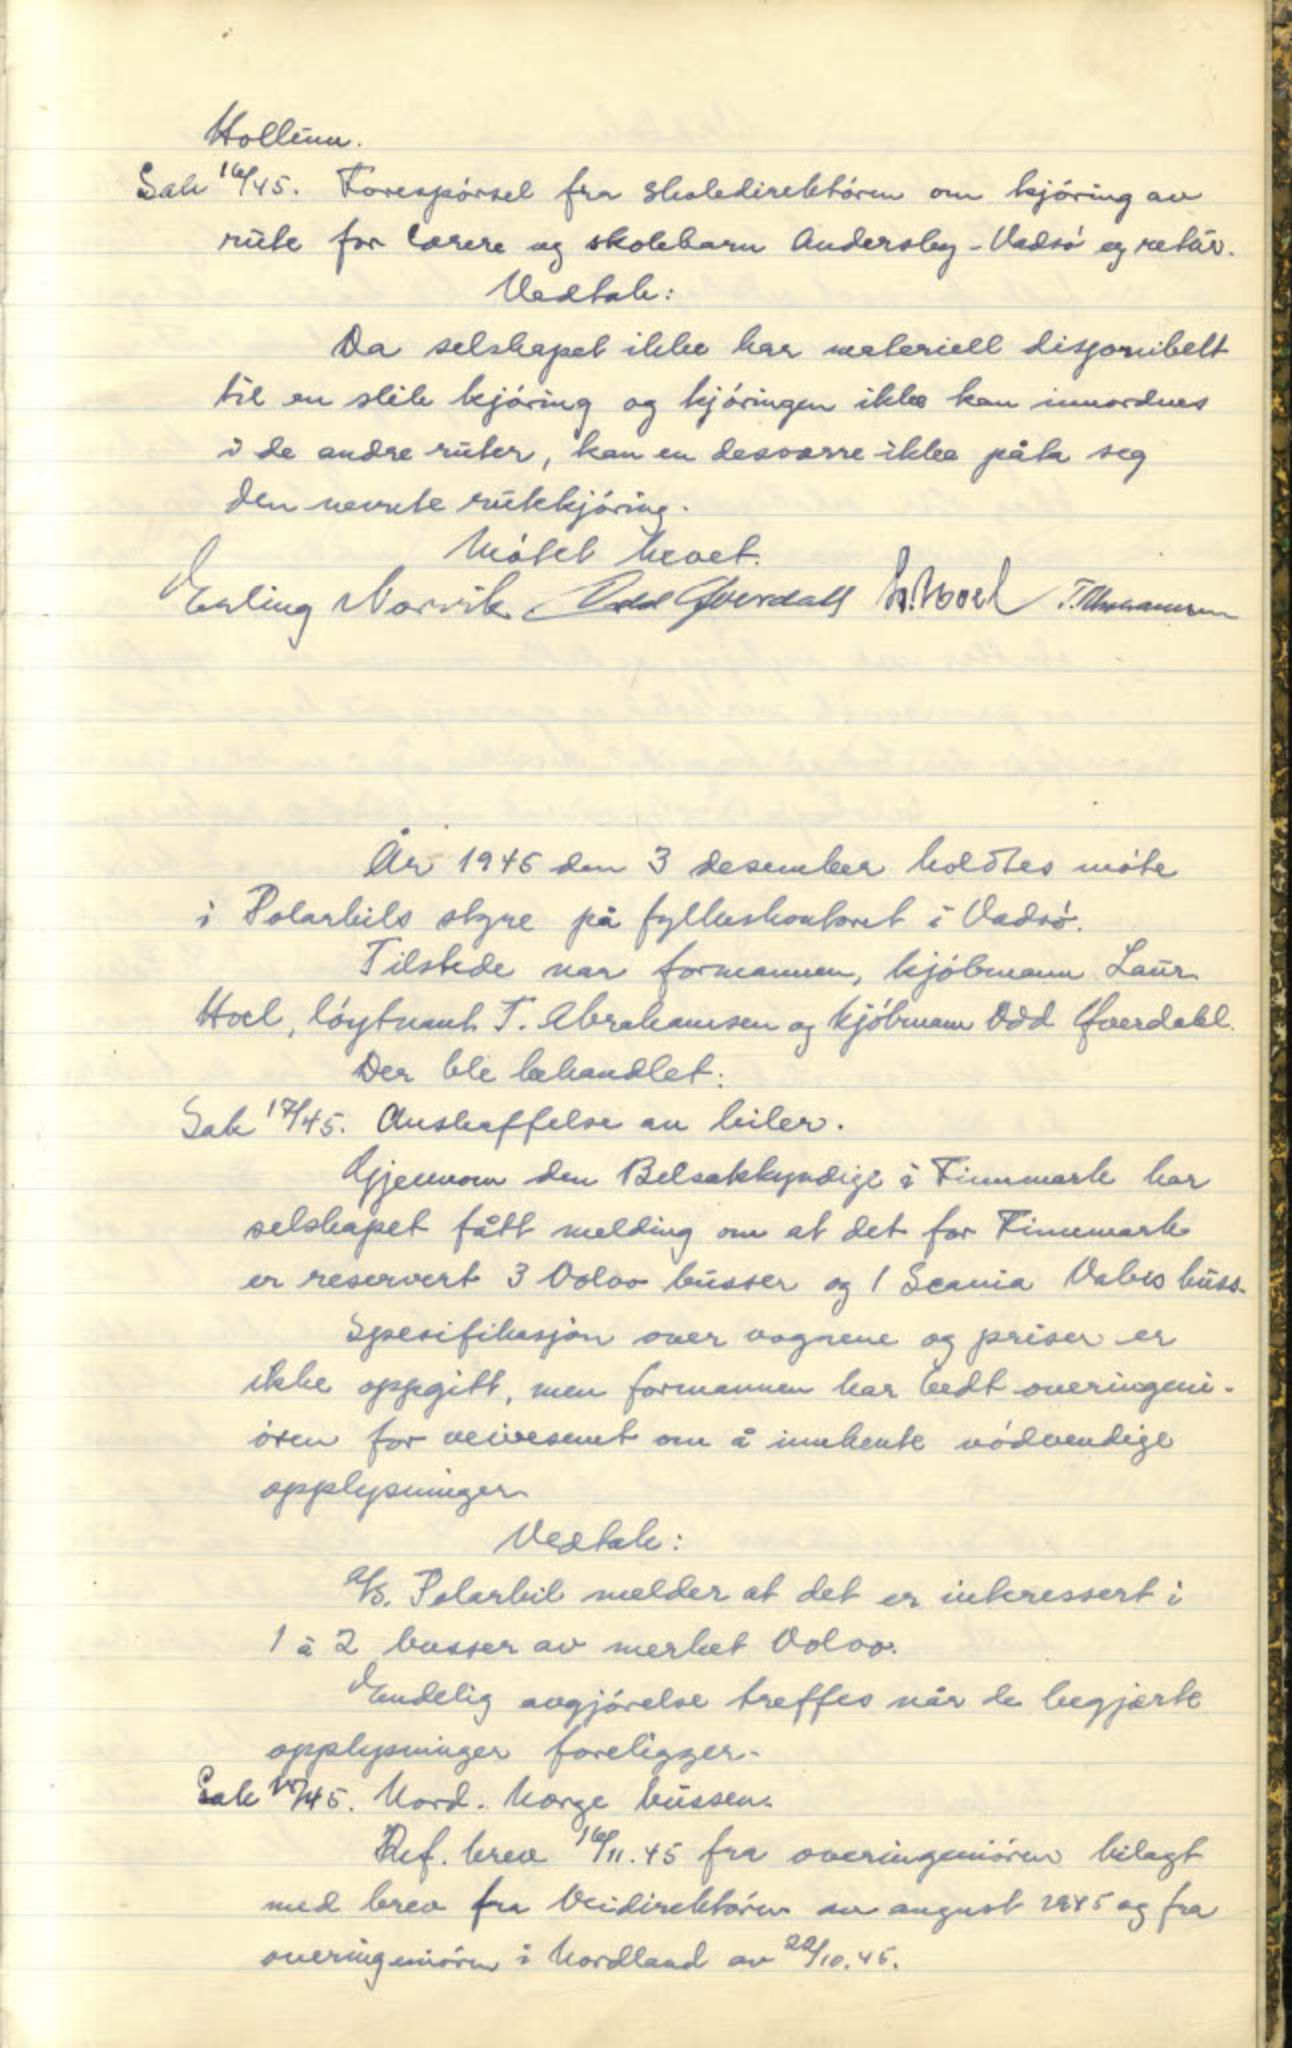 Hollum.
Sak 16/45. Forespórsel fra skoledirektóren om kjóring av
rute for lærere og skolebarn Andersby - Vadsó og retur.
Vedtak:
Da selskapet ikke har materiell disponibelt
til en slik kjóring og kjóringen ikke kan innordnes
i de andre ruter, kan en desværre ikke påta seg
den nevnte rutekjóring.
Mótet hevet.
Erling Norvik Odd Qverdahl L. Hoel T. Abrahamsen
År 1945 den 3 desember holdtes móte
i Polarbils styre på fylkeskontoret i Vadsó.
Tilstede var formannen, kjóbmann Laur.
Hoel, lóytnant T. Abrahamsen og kjóbmann Odd Qverdahl.
Der ble behandlet:
Sak 17/45. Anskaffelse av biler.
Gjennom den Bilsakkyndige i Finnmark har
selskapet fått melding om at det for Finnmark
er reservert 3 Volvo busser og 1 Scania Vabis buss.
Spesifikasjon over vognene og priser er
ikke oppgitt, men formannen har bedt overingeni-
óren for veivesenet om å innhente nódvendige
opplysninger
Vedtak:
A/S. Polarbil melder at det er interessert i
1 à 2 busser av merket Volvo.
Endelig avgjórelse treffes når de begjærte
opplysninger foreligger.
Sak 18/45. Nord. Norge bussen.
Ref. brev 16/11.45 fra overingeniören bilagt
med brev fra Veidirektören av august 1945 og fra
overingeniören i Nordland av 22/10.45.